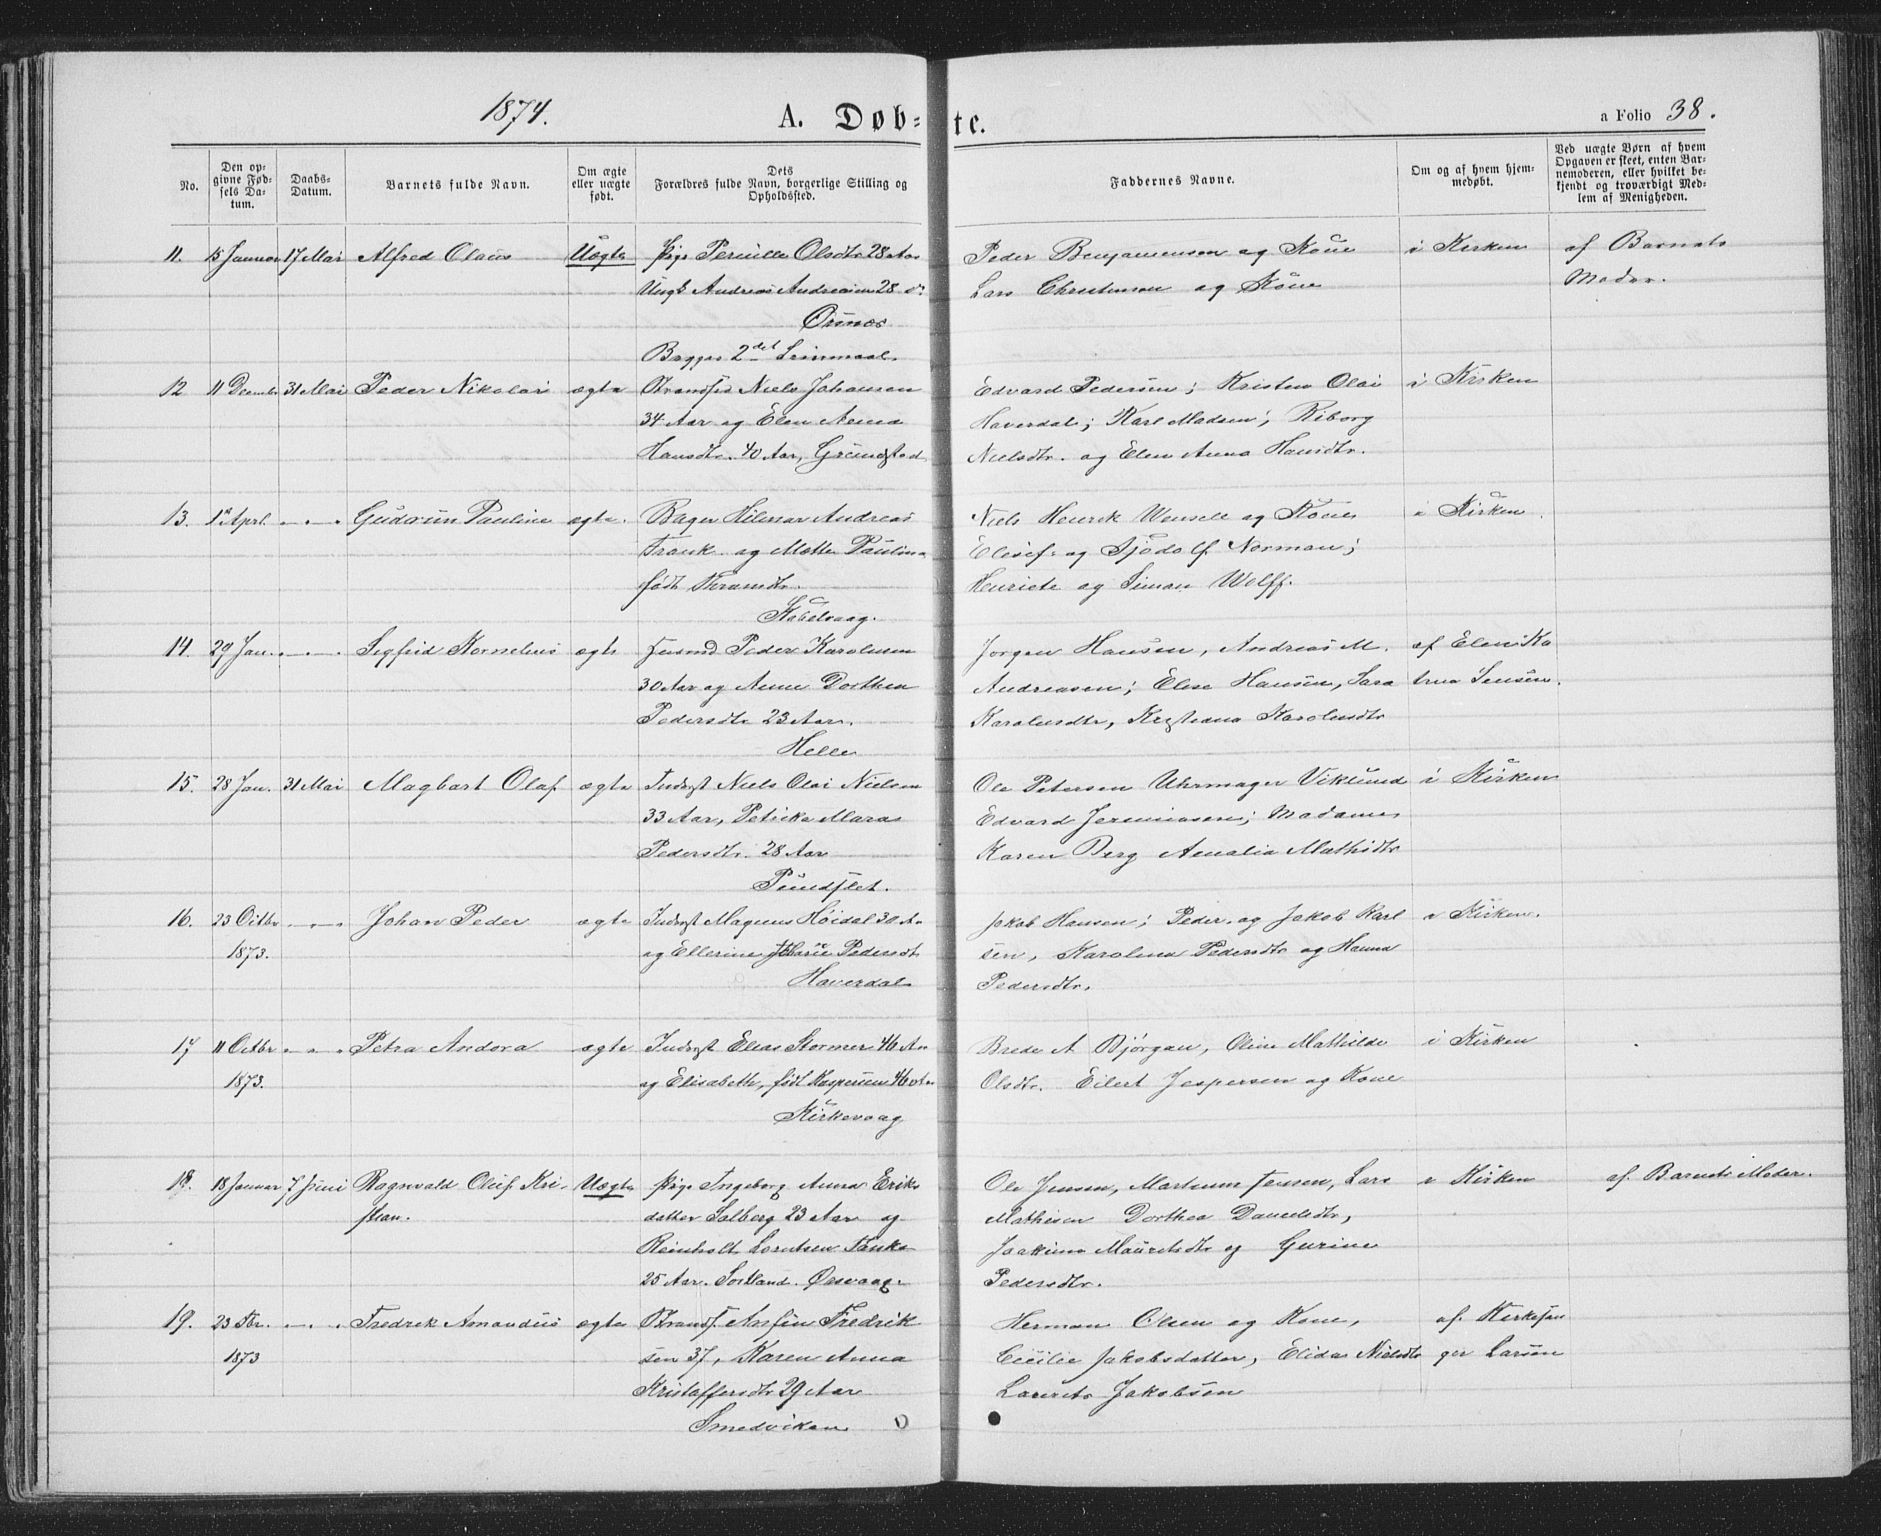 1874.
A. Døb-
te.
a Folio 38.
No.
Den op-
givne Fød-
sels Da-
tum.
Daabs-
Datum.
Barnets fulde Navn.
Om ægte
eller uægte
født.
Dets
Forældres fulde Navn, borgerlige Stilling og
Opholdssted.
Faddernes Navne.
Om og af hvem hjem-
medøbt.
Ved uægte Børn af hvem
Opgaven er skeet, enten Bar-
nemoderen, eller hvilket be-
kjendt og troværdigt Med-
lem af Menigheden.
11. 15 Januar 17 Mai Alfred Olaus Uægte Pige Pernille Olsdtr 28 Aar
Ungk Andreas Andreasen 28 do
Ørsnes
Begges 2det Leiermaal
Peder Benjaminsen og Kone
Lars Christensen og Kone
i Kirken
af Barnets
Moder.
12 11 Decembr 31 Mai Peder Nikolai ægte Strands Niels Johansen
34 Aar og Elen Anna
Hansdtr. 40 Aar, Grundstad
Edvard Pedersen; Kristen Olai
Haverdal; Karl Madsen; Riborg
Nielsdtr. og Elen Anna Hansdtr.
i Kirken
13. 1st Apr. " " " Gudrun Pauline ægte. Bager Hilmar Andreas
Frank og Mette Pauline
født Strandtr.
Kabelvaag.
Niels Henrik og Kone
Elisef og Norman;
Henriete og Simon Wolff.
i Kirken
14. 29 Jan. " " " Sigfrid Kornelius ægte Huusmd Peder Karolusen
30 Aar og Anne Dorthea
Pedersdtr 23 Aar.
Helle
Jørgen Hansen, Andreas M.
Andreasen; Elise Hansen, Sara
Karolusdtr, Kristiana Karolusdtr
af Elen Ka
trina Jensen.
15. 28 Jan. 31 Mai Magbart Olaf ægte Inderst Niels Olai Nielsen
33 Aar, Petrike Mara
Pedersdtr. 28 Aar
Pundslet.
Ole Petersen Uhrmager Viklund
Edvard Jeremiasen; Madame
Karen Berg Amalia Mathisdtr
i Kirken
16. 23 Octbr " " " Johan Peder ægte Inderst Magnus Høidal 30 Aar
1873.
og Ellerine Marie Pedersdt
Haverdal
Jakob Hansen; Peder og Jakob Karl
sen, Karolina Pedersdtr og Hanna
Pedersdtr.
i Kirken.
17 11 Octbr " " " Petra Andora ægte Inderst Elias Stormer 46 Aar
1873.
og Elisabeth, født Kaspersen 46 Aar
Kirkevaag
Brede A Bjørgan, Oline Mathilde
Olsdtr. Eilert Jespersen og Kone
i Kirken
18. 18 Januar 7 Juni Ragnvald Oluf Kri-
stian.
Uægte Pige Ingeborg Anna Eriks
datter Solberg 23 Aar og
Reinholt Lorntsen Tanke
25 Aar. Sortland. Ørsvaag.
Ole Jensen, Martinus Jensen, Lars
Mathisen Dorthea Danielsdtr,
Joakima Mauritsdtr og Gurine
Pedersdtr.
i Kirken
af Barnets Moder.
19. 23 1873 " " " Fredrek Amandus ægte Strands. Anfin Fredrik
sen 37, Karen Anna
Kristoffersdtr 29 Aar
Smedviken
Herman Olsen og Kone,
Cecilie Jakobsdatter, Elida Nielsdtr
Laurits Jakobsen
af Kirkesan
ger Larsen